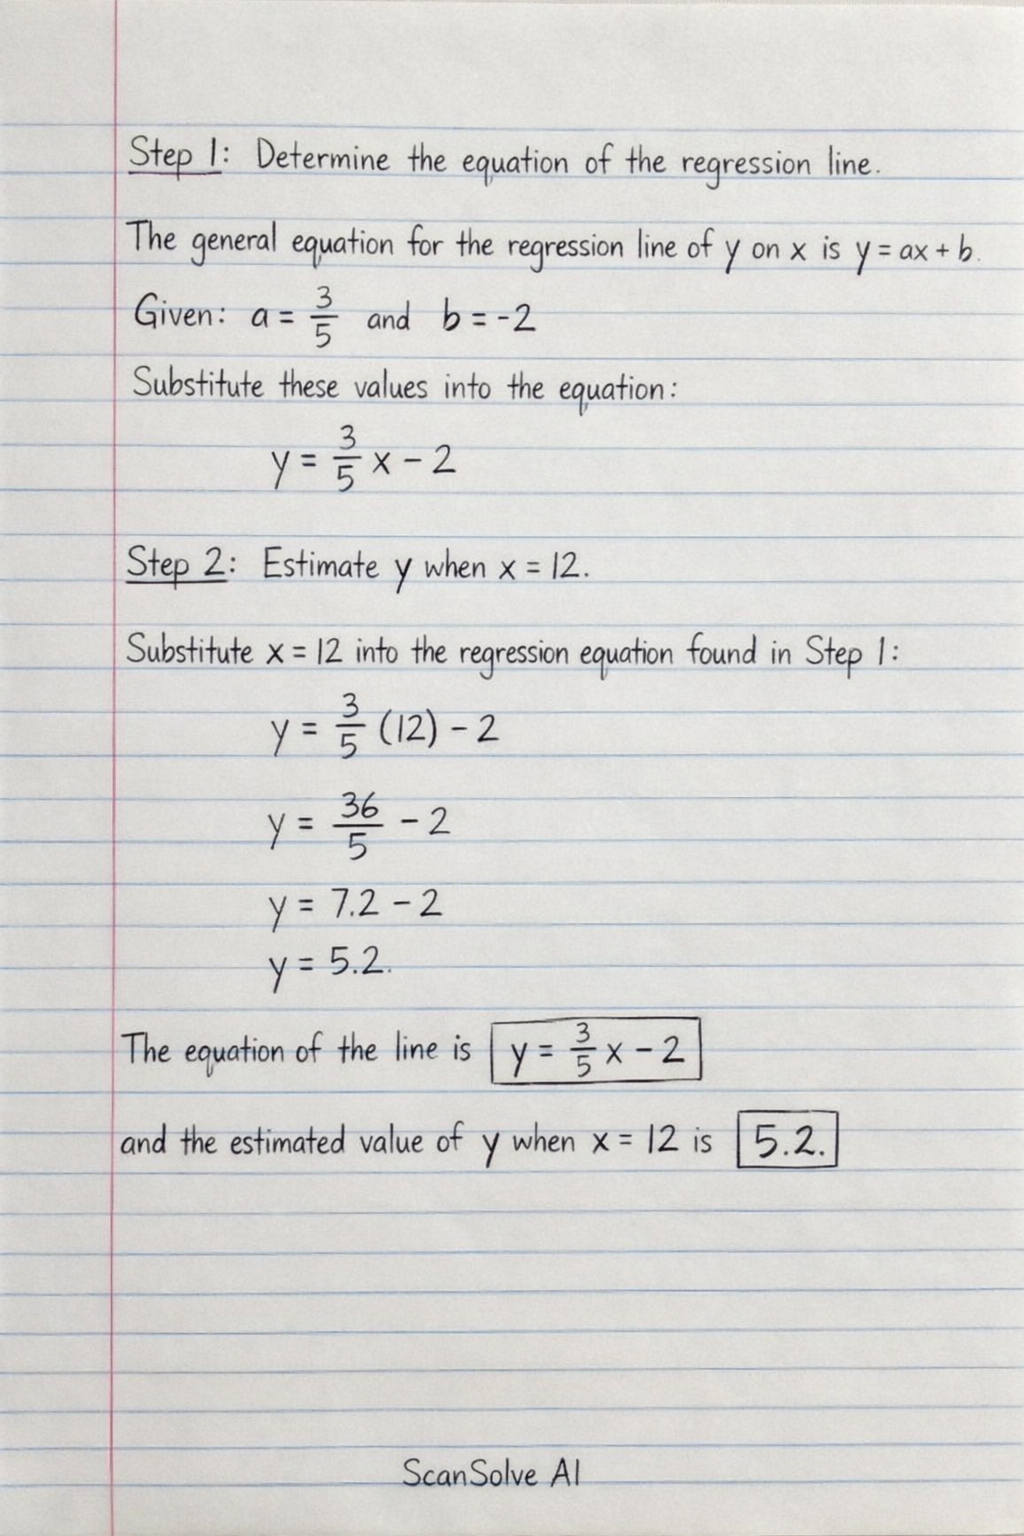 Step 1: Determine the equation of the regression line.
The general equation for the regression line of y on x is y = ax + b.
Given: a = 3/5 and b = -2
Substitute these values into the equation:
y = 3/5 x - 2
Step 2: Estimate y when x = 12.
Substitute x = 12 into the regression equation found in Step 1:
y = 3/5 (12) - 2
y = 36/5 - 2
y = 7.2 - 2
y = 5.2.
The equation of the line is y = 3/5 x - 2
and the estimated value of y when x = 12 is 5.2.
ScanSolve AI